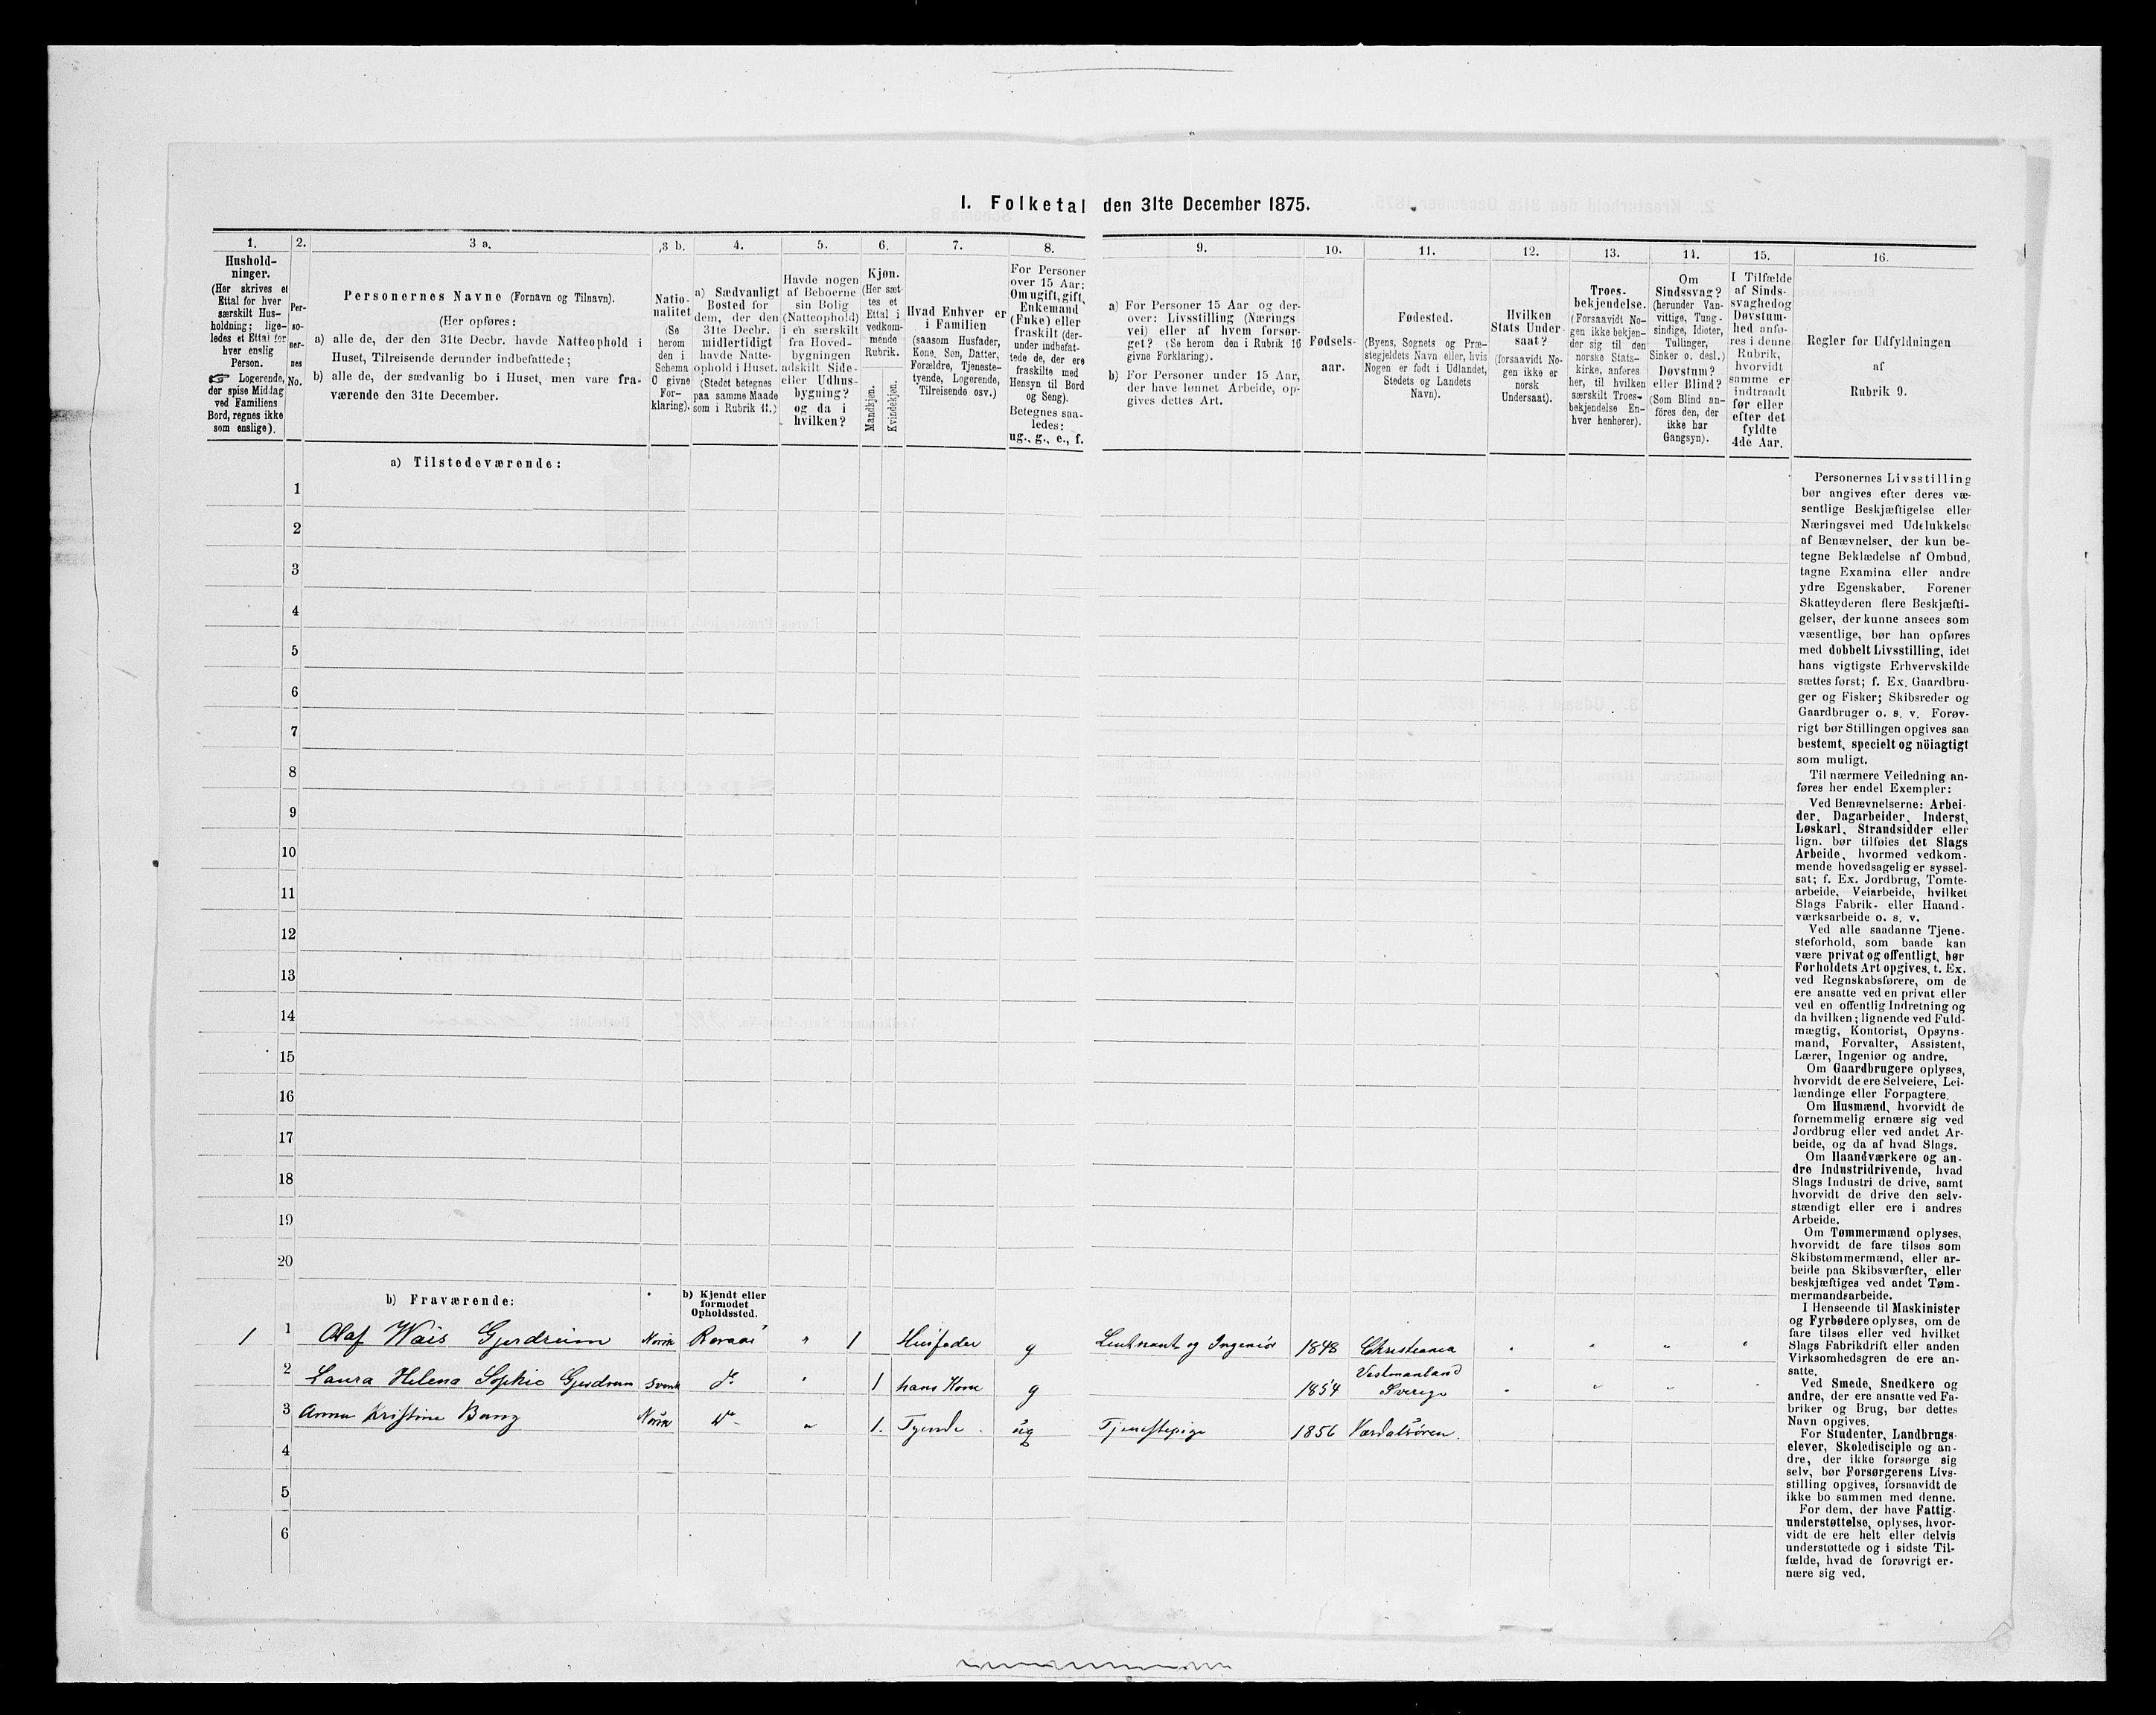 I. Folketal den 31te December 1875.
1.
Hushold-
ninger.
(Her skrives et
Ettal for hver
særskilt Hus-
holdning; lige-
ledes et Ettal for
hver enslig
Person.
☞ Logerende,
der spise Middag
ved Familiens
Bord, regnes ikke
som enslige).
2.
Per-
so-
ner-
nes
No.
3 a.
Personernes Navne (Fornavn og Tilnavn).
(Her opføres:
a) alle de, der den 31te Decbr. havde Natteophold i
Huset, Tilreisende derunder indbefattede;
b) alle de, der sædvanlig bo i Huset, men vare fra-
værende den 31te December.
3 b.
Natio-
nalitet
(Se
herom
den i
Schema
C givne
For-
klaring).
4.
a) Sædvanligt
Bosted for
dem, der den
31te Decbr.
midlertidigt
havde Natte-
ophold i Huset.
(Stedet betegnes
paa samme Maade
som i Rubrik 11.)
5.
Havde nogen
af Beboerne
sin Bolig
(Natteophold)
i en særskilt
fra Hoved-
bygningen
adskilt Side-
eller Udhus-
bygning?
og da i
hvilken?
6.
Kjøn.
(Her sæt-
tes et
Ettal i
vedkom-
mende
Rubrik.
Mandkjøn.
Kvindekjøn.
7.
Hvad Enhver er
i Familien
(saasom Husfader,
Kone, Søn, Datter,
Forældre, Tjeneste-
tyende, Logerende,
Tilreisende osv.)
8.
For Personer
over 15 Aar:
Om ugift, gift,
Enkemand
(Enke) eller
fraskilt (der-
under indbefat-
tede de, der ere
fraskilte med
Hensyn til Bord
og Seng).
Betegnes saa-
ledes:
ug., g., e., f.
9.
a) For Personer 15 Aar og der-
over: Livsstilling (Nærings-
vei) eller af hvem forsør-
get? (Se herom den i Rubrik 16
givne Forklaring).
b) For Personer under 15 Aar,
der have lønnet Arbeide, op-
gives dettes Art.
10.
Fødsels-
aar.
11.
Fødested.
(Byens, Sognets og Præ-
stegjeldets Navn eller, hvis
Nogen er født i Udlandet,
Stedets og Landets
Navn).
12.
Hvilken
Stats Under-
saat?
(forsaavidt No-
gen ikke er
norsk
Undersaat).
13.
Troes-
bekjendelse.
(Forsaavidt No-
gen ikke bekjen-
der sig til den
norske Stats-
kirke, anføres
her, til hvilken
særskilt Troes-
bekjendelse En-
hver henhører).
14.
Om
Sindssvag?
(herunder Van-
vittige, Tung-
sindige, Idioter,
Tullinger,
Sinker o. desl.)
Døvstum?
eller Blind?
(Som Blind an-
føres den, der
ikke har
Gangsyn).
15.
I Tilfælde
af Sinds-
svaghed og
Døvstum-
hed anfø-
res i denne
Rubrik,
hvorvidt
samme er
indtraadt
før eller
efter det
fyldte
4de Aar.
16.
Regler for Udfyldningen
af
Rubrik 9.
a) Tilstedeværende:
1
2
3
4
5
6
7
8
9
10
11
12
13
14
15
16
17
18
19
20
b) Fraværende:
b) Kjendt eller
formodet
Opholdssted.
1 1 Olaf Wais Gjerdrum Norsk Roraas " 1 Husfader g Leutnant og Ingeniør 1848 Christiania
2 Laura Helena Sophie Gjerdrum Svensk do " 1 hans Kone g 1854 Vestmanland Sverige
3 Anna Kristine Bang Norsk do " 1. Tyende ug Tjenestepige 1856 Værdalsøren.
4
5
6
Personernes Livsstilling
bør angives efter deres væ-
sentlige Beskjæftigelse eller
Næringsvei med Udelukkelse
af Benævnelser, der kun be-
tegne Beklædelse af Ombud,
tagne Examina eller andre
ydre Egenskaber. Forener
Skatteyderen flere Beskjæfti-
gelser, der kunne ansees som
væsentlige, bør han opføres
med dobbelt Livsstilling, idet
hans vigtigste Erhvervskilde
sættes først; f. Ex. Gaardbru-
ger og Fisker; Skibsreder og
Gaardbruger o. s. v. Forøv-
rigt bør Stillingen opgives saa
bestemt, specielt og nöiagtigt
som muligt.
Til nærmere Veiledning an-
føres her endel Exempler:
Ved Benævnelserne: Arbei-
der, Dagarbeider, Inderst,
Løskarl, Strandsidder eller
lign. bør tilføies det Slags
Arbeide, hvormed vedkom-
mende hovedsagelig er syssel-
sat; f. Ex. Jordbrug, Tomte-
arbeide, Veiarbeide, hvilket
Slags Fabrik- eller Haand-
værksarbeide o. s. v.
Ved alle saadanne Tjene-
steforhold, som baade kan
være privat og offentligt, bør
Forholdets Art opgives, t. Ex.
ved Regnskabsførere, om de
ere ansatte ved en privat eller
ved en offentlig Indretning og
da hvilken; lignende ved Fuld-
mægtig, Kontorist, Opsyns-
mand, Forvalter, Assistent,
Lærer, Ingeniør og andre.
Om Gaardbrugere oplyses,
hvorvidt de ere Selveiere, Lei-
lændinge eller Forpagtere.
Om Husmænd, hvorvidt de
fornemmelig ernære sig ved
Jordbrug eller ved andet Ar-
beide, og da af hvad Slags.
Om Haandværkere og an-
dre Industridrivende, hvad
Slags Industri de drive, samt
hvorvidt de drive den selv-
stændigt eller ere i andres
Arbeide.
Om Tømmermænd oplyses,
hvorvidt de fare tilsøs som
Skibstømmermænd, eller ar-
beide paa Skibsværfter, eller
beskjæftiges ved andet Tøm-
mermandsarbeide.
I Henseende til Maskinister
og Fyrbødere oplyses, om de
fare tilsøs eller ved hvilket
Slags Fabrikdrift eller anden
Virksomhedsgren de ere an-
satte.
Ved Smede, Snedkere og
andre, der ere ansatte ved Fa-
briker og Brug, bør dettes
Navn opgives.
For Studenter, Landbrugs-
elever, Skoledisciple og an-
dre, der ikke forsørge sig
selv, bør Forsørgerens Livs-
stilling opgives, forsaavidt de
ikke bo sammen med denne.
For dem, der have Fattig-
understøttelse, oplyses, hvor-
vidt de ere helt eller delvis
understøttede og i sidste Til-
fælde, hvad de forøvrigt er-
nære sig ved.